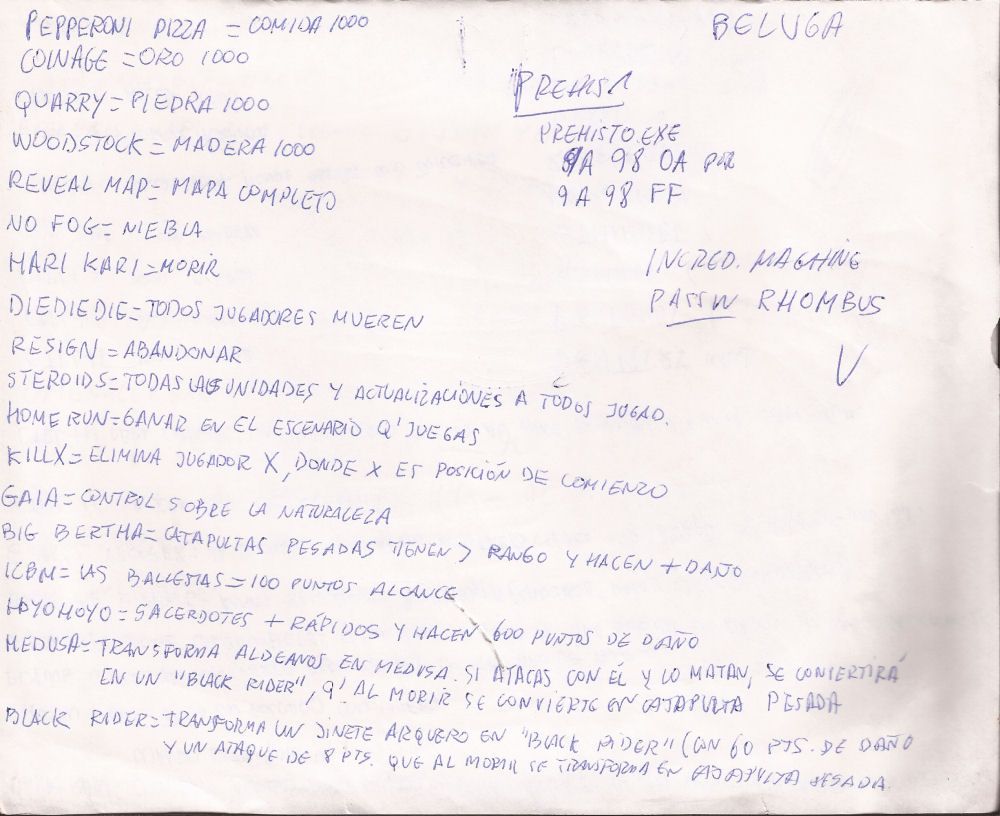 PEPPERONI PIZZA = COMIDA 1000
COINAGE = ORO 1000
QUARRY = PIEDRA 1000
WOODSTOCK = MADERA 1000
REVEAL MAP = MAPA COMPLETO
NO FOG = NIEBLA
HARI KARI = MORIR
DIEDIEDIE = TODOS JUGADORES MUEREN
RESIGN = ABANDONAR
STEROIDS = TODAS LAS UNIDADES Y ACTUALIZACIONES A TODOS JUGAD.
HOME RUN = GANAR EN EL ESCENARIO Q' JUEGAS
KILLX = ELIMINA JUGADOR X, DONDE X ES POSICIÓN DE COMIENZO
GAIA = CONTROL SOBRE LA NATURALEZA
BIG BERTHA = CATAPULTAS PESADAS TIENEN > RANGO Y HACEN + DAÑO
ICBM = LAS BALLESTAS = 100 PUNTOS ALCANCE
HOYOHOYO = SACERDOTES + RÁPIDOS Y HACEN 600 PUNTOS DE DAÑO
MEDUSA = TRANSFORMA ALDEANOS EN MEDUSA. SI ATACAS CON ÉL Y LO MATAN, SE CONVERTIRÁ
EN UN "BLACK RIDER", Q' AL MORIR SE CONVIERTE EN CATAPULTA PESADA
BLACK RIDER = TRANSFORMA UN JINETE ARQUERO EN "BLACK RIDER" (CON 60 PTS. DE DAÑO
Y UN ATAQUE DE 8 PTS. QUE AL MORIR SE TRANSFORMA EN CATAPULTA PESADA.
BELUGA
PREHIS1
PREHISTO.EXE
9A 98 0A POR
9A 98 FF
INCRED. MACHINE
PASSW RHOMBUS
V